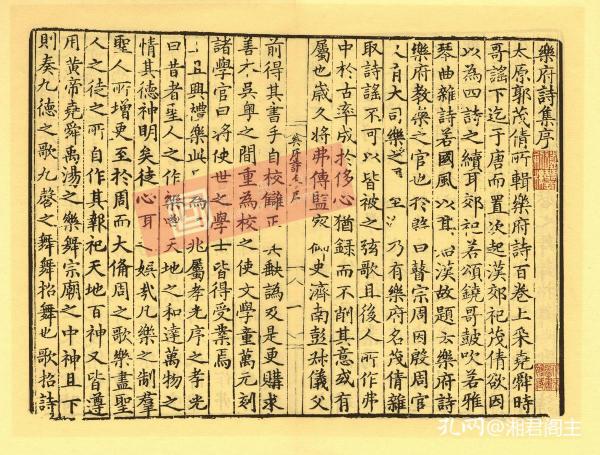 樂府詩集序
太原郭茂倩所輯樂府詩百卷上采堯舜時
哥謠下迄于唐而置次起漢郊祀茂倩欲因
以為四詩之續耳郊祀若頌鐃哥鼓吹若雅
琴曲雜詩若國風以其 漢故題云樂府詩
樂府教樂之官也於殷曰瞽宗周因殷周官
又有大司樂之 至 乃有樂府名茂倩雜
取詩謠不可以皆被之弦歌且後人所作弗
中於古率成於侈心猶錄而不削其意或有
屬也歲久將弗傳監察御史濟南彭叔儀父
八 一
前得其書手自校讎正其缺譌及是更購求
善本吳粵之間重為校之使文學童萬元刻
諸學官曰將使世之學士皆得受業焉
且興禮樂此 為 兆屬孝光序之孝光
曰昔者聖人之作樂 天地之和達萬物之
情其德神明矣徒心耳之娛哉凡樂之制羣
聖人所增更至於周而大備周之歌樂盡聖
人之徒之所自作其報祀天地百神又皆遵
用黃帝堯舜禹湯之樂舞宗廟之中神且下
則奏九德之歌九磬之舞舞招舞也歌招詩
孔网@湘君阁主